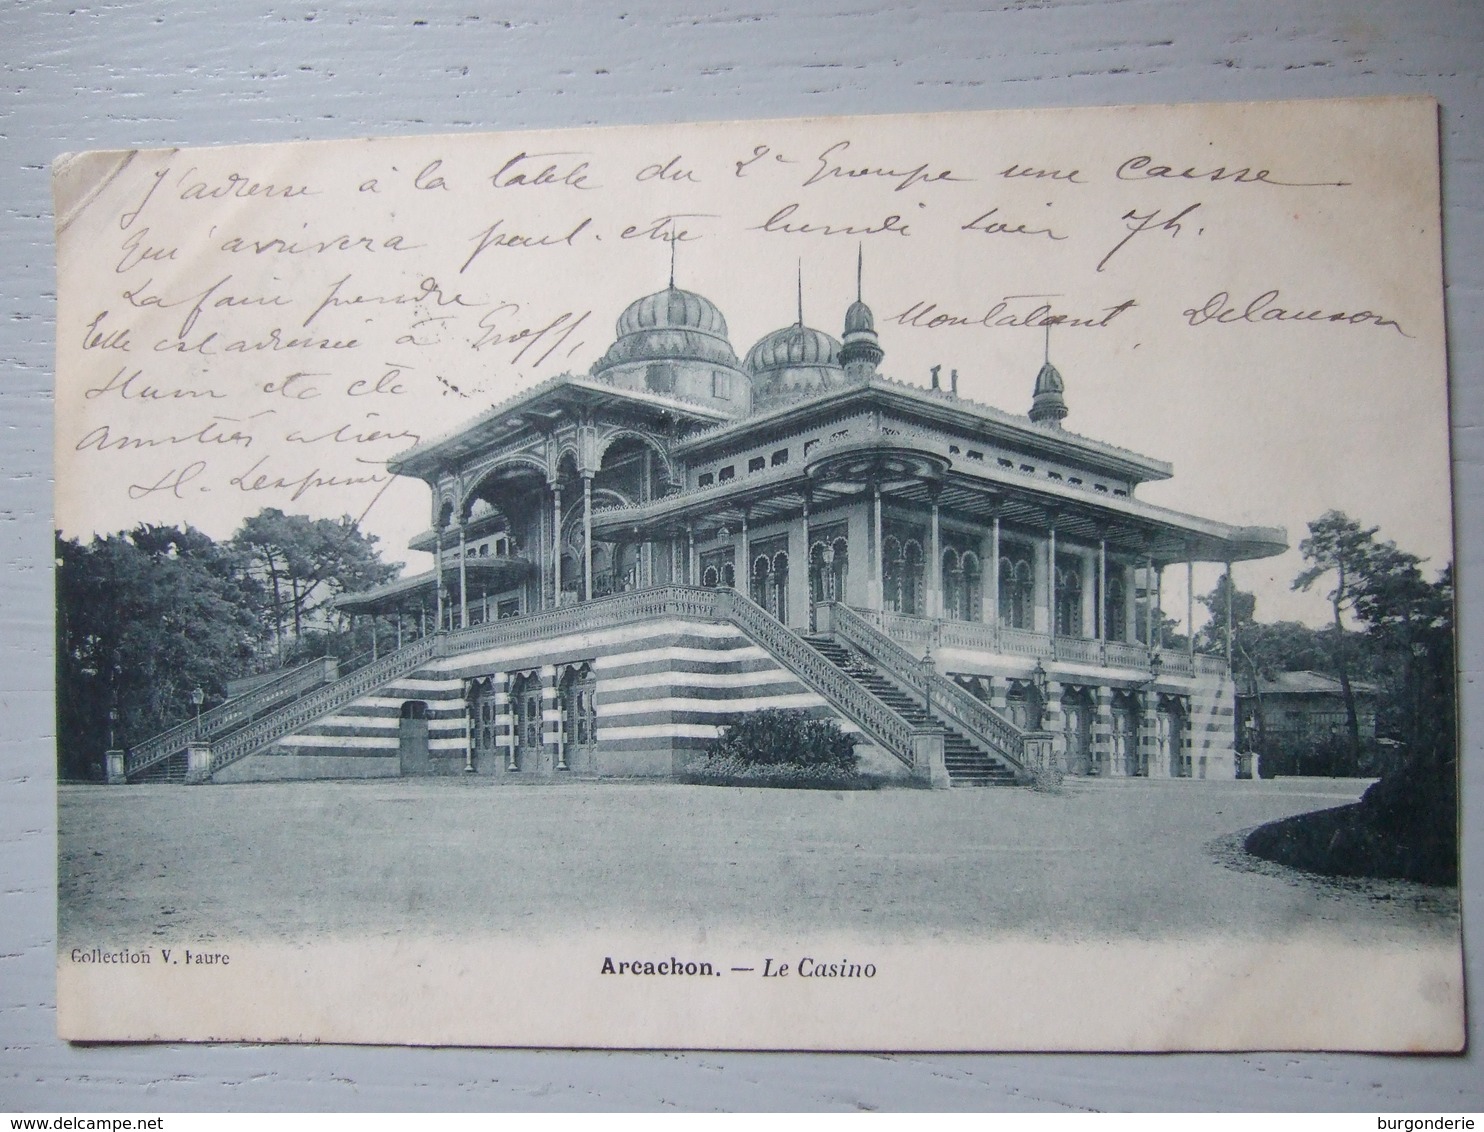 J'adresse à la table du 2e Groupe une caisse
qui arrivera peut-être lundi soir 7h.
La faire prendre
Elle est adressée à Groff, Montalant Delanson
Huin etc etc
Amitiés
H.
Collection V. Faure
Arcachon. — Le Casino
burgonderie